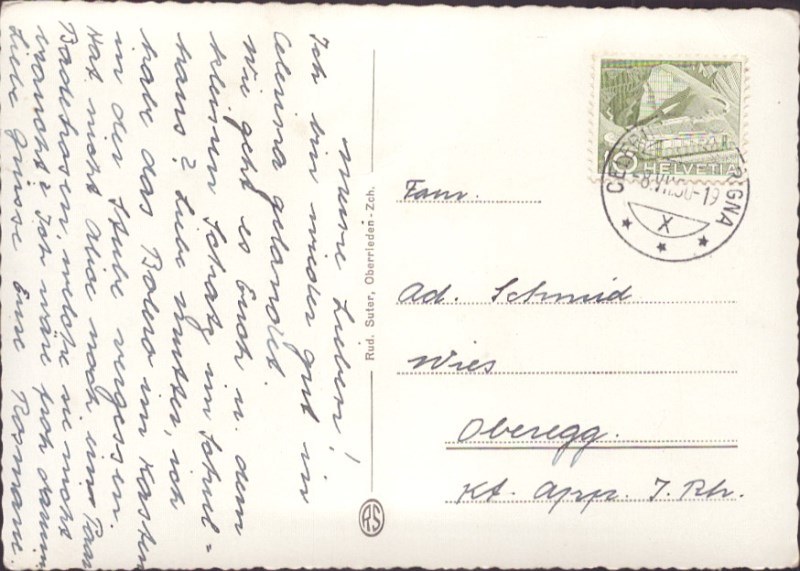 Meine Lieben!
Ich bin wieder gut in
Celerina gelandet.
Wie geht es Euch u. dem
kleinen Schatz im Schul-
haus? Liebe Mutter, ich
habe das Bolero im Kasten
in der Stube vergessen.
Hat nicht Alice noch ein Paar
Badehosen, welche sie nicht
braucht? Ich wäre froh darum.
Liebe Grüsse Eure Rosmarie.
Rud. Suter, Oberrieden-Zch.
RS
HELVETIA
-8.VII.50-19
X
Fam.
Ad. Schmid
Wies
Oberegg.
Kt. App. I. Rh.